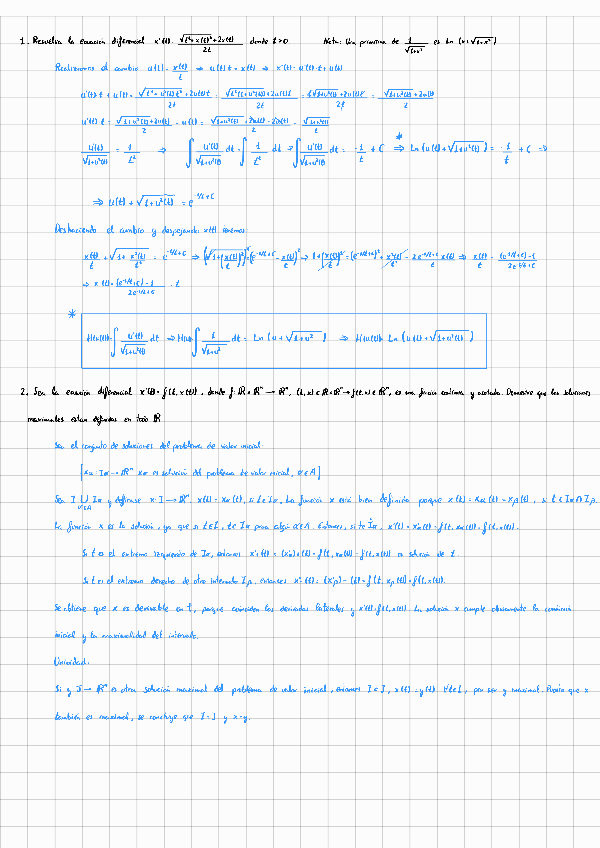 1. Resuelva la ecuación diferencial x'(t) = \frac{\sqrt{t^2+x(t)^2}+2x(t)}{2t} donde t>0 Nota: Una primitiva de \frac{1}{\sqrt{1+x^2}} es Ln(x+\sqrt{1+x^2})
Realizamos el cambio u(t) = \frac{x(t)}{t} ⇒ u(t)·t = x(t) ⇒ x'(t) = u'(t)·t + u(t)
u'(t)·t + u(t) = \frac{\sqrt{t^2+u^2(t)t^2}+2u(t)t}{2t} = \frac{\sqrt{t^2(1+u^2(t))}+2u(t)t}{2t} = \frac{t\sqrt{1+u^2(t)}+2u(t)t}{2t} = \frac{\sqrt{1+u^2(t)}+2u(t)}{2}
u'(t)·t = \frac{\sqrt{1+u^2(t)}+2u(t)}{2} - u(t) =
\frac{u'(t)}{\sqrt{1+u^2(t)}} = \frac{1}{t^2} ⇒ ∫\frac{u'(t)}{\sqrt{1+u^2(t)}} dt = ∫\frac{1}{t^2} dt ⇒ ∫\frac{u'(t)}{\sqrt{1+u^2(t)}} dt = -\frac{1}{t} + C *⇒ Ln(u(t)+\sqrt{1+u^2(t)}) = -\frac{1}{t} + C ⇒
⇒ u(t) + \sqrt{1+u^2(t)} = e^{-1/t+C}
Deshaciendo el cambio y despejando x(t) tenemos:
\frac{x(t)}{t} + \sqrt{1+\frac{x^2(t)}{t^2}} = e^{-1/t+C} ⇒
⇒ x(t) = \frac{(e^{-1/t+C})^2-1}{2e^{-1/t+C}} · t
* H(u(t)) = ∫\frac{u'(t)}{\sqrt{1+u^2(t)}} dt ⇒ H(u) = ∫\frac{1}{\sqrt{1+u^2}} dt = Ln(u+\sqrt{1+u^2}) ⇒ H(u(t)) = Ln(u(t)+\sqrt{1+u^2(t)})
2. Sea la ecuación diferencial x'(t) = f(t, x(t)), donde f: ℝ×ℝⁿ → ℝⁿ, (t,x) ∈ ℝ×ℝⁿ → f(t,x) ∈ ℝⁿ, es una función continua y acotada. Demuestre que las soluciones
maximales están definidas en todo ℝ
Sea el conjunto de soluciones del problema de valor inicial:
{xα: Iα → ℝⁿ xα es solución del problema de valor inicial, α∈A}
Sea I = ⋃_{α∈A} Iα y defínase x: I → ℝⁿ, x(t) = xα(t), si t∈Iα. La función x está bien definida porque x(t) = xα(t) = xβ(t), si t∈Iα∩Iβ.
La función x es la solución, ya que si t∈I, t∈Iα para algún α∈A. Entonces, si t∈Iα, x'(t) = x'α(t) = f(t, xα(t)) = f(t, x(t)).
Si t es el extremo izquierdo de Iα, entonces = f(t, xα(t)) = f(t, x(t)) es solución de t.
Si t es el extremo derecho de otro intervalo Iβ, entonces = f(t, xβ(t)) = f(t, x(t)).
Se obtiene que x es derivable en t, porque coinciden las derivadas laterales y x'(t) = f(t, x(t)). La solución x cumple obviamente la condición
inicial y la maximalidad del intervalo.
Unicidad:
Si y: J → ℝⁿ es otra solución maximal del problema de valor inicial, entonces I⊂J, x(t) = y(t) ∀t∈I, por ser y maximal. Puesto que x
también es maximal, se concluye que I=J y x=y.